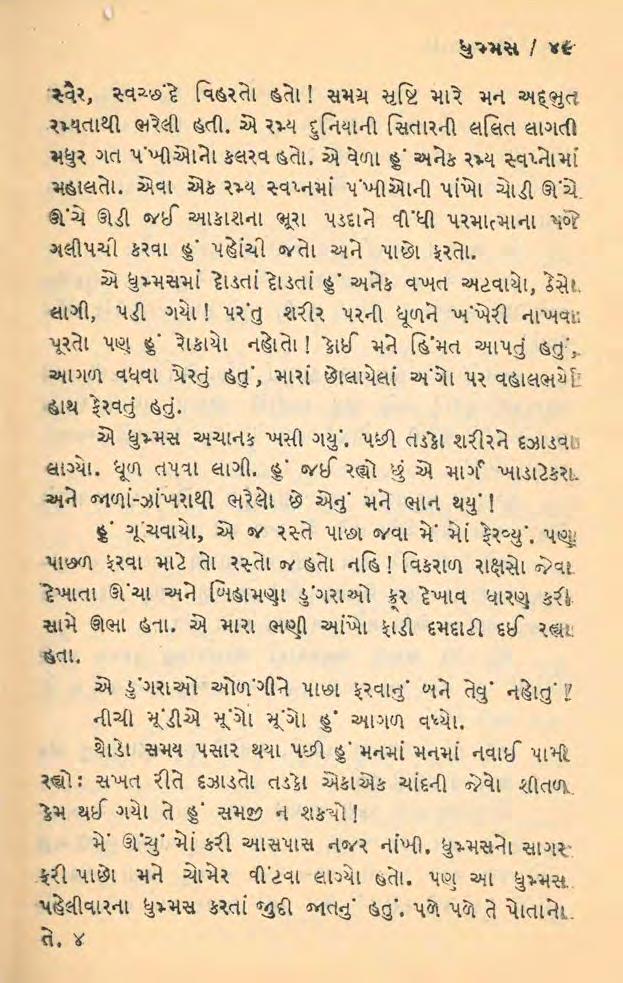 ધુમ્મસ / ૪૯
સ્વૈર, સ્વચ્છંદે વિહરતો હતો! સમગ્ર સૃષ્ટિ મારે મન અદ્દભુત
રમ્યતાથી ભરેલી હતી. એ રમ્ય દુનિયાની સિતારની લલિત લાગતી
મધુર ગત પંખીઓનો કલરવ હતો. એ વેળા હું અનેક રમ્ય સ્વપ્નોમાં
મહાલતો. એવા એક રમ્ય સ્વપ્નમાં પંખીઓની પાંખો ચોડી ઊંચે
ઊંચે ઊડી જઈ આકાશના ભૂરા પડદાને વીંધી પરમાત્માના પંજે
ગલીપચી કરવા હું પહોંચી જતો અને પાછો ફરતો.
એ ધુમ્મસમાં દોડતાં દોડતાં હું અનેક વખત અટવાયો, ઠેસો
લાગી, પડી ગયો! પરંતુ શરીર પરની ધૂળને ખંખેરી નાખવા
પૂરતો પણ હું રોકાયો નહોતો! કોઈ મને હિંમત આપતું હતું,
આગળ વધવા પ્રેરતું હતું, મારાં છોલાયેલાં અંગો પર વહાલભર્યો
હાથ ફેરવતું હતું.
એ ધુમ્મસ અચાનક ખસી ગયું. પછી તડકો શરીરને દઝાડવા
લાગ્યો. ધૂળ તપવા લાગી. હું જઈ રહ્યો છું એ માર્ગ ખાડાટેકરા
અને જાળાં-ઝાંખરાથી ભરેલો છે એનું મને ભાન થયું!
હું ગૂંચવાયો, એ જ રસ્તે પાછા જવા મેં મોં ફેરવ્યું. પણ
પાછળ ફરવા માટે તો રસ્તો જ હતો નહિ! વિકરાળ રાક્ષસો જેવા
દેખાતા ઊંચા અને બિહામણા ડુંગરાઓ ક્રૂર દેખાવ ધારણ કરી
સામે ઊભા હતા. એ મારા ભણી આંખો ફાડી દમદાટી દઈ રહ્યા
હતા.
એ ડુંગરાઓ ઓળંગીને પાછા ફરવાનું બને તેવું નહોતું!
નીચી મૂંડીએ મૂંગો મૂંગો હું આગળ વધ્યો.
થોડો સમય પસાર થયા પછી હું મનમાં મનમાં નવાઈ પામી
રહ્યો: સખત રીતે દઝાડતો તડકો એકાએક ચાંદની જેવો શીતળ
કેમ થઈ ગયો તે હું સમજી ન શક્યો!
મેં ઊંચું મોં કરી આસપાસ નજર નાંખી. ધુમ્મસનો સાગર
ફરી પાછો મને ચોમેર વીંટવા લાગ્યો હતો. પણ આ ધુમ્મસ
પહેલીવારના ધુમ્મસ કરતાં જુદી જાતનું હતું. પળે પળે તે પોતાનો
તે. ૪